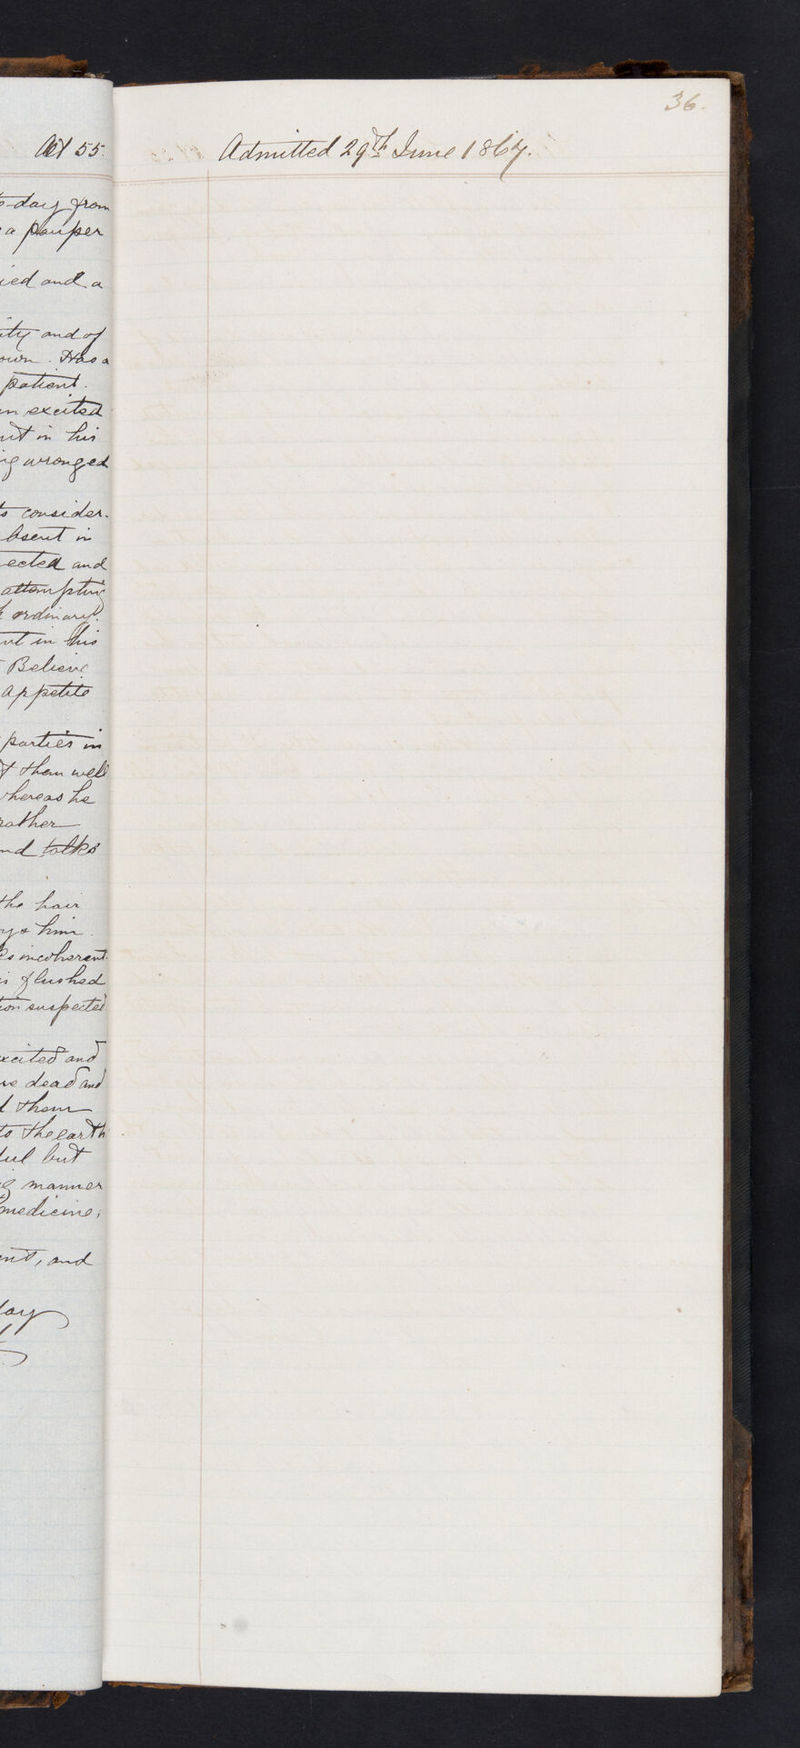 36.
Aet 55. Admitted 29th June 1867.
to-day from
a pauper
ied and a
ity and of
own. Has a
patient.
an excited
ent in his
ing wronged
to consider-
bsent in
ected and
attempting
ordinary.
ent in his
Believe
appetite
parties in
them well
whereas he
rather
and talks
the hair
him.
is incoherent
is flushed
ion suspected
excited and
are dead and
them
to the earth
ful but
manner
medicine;
ent, and
day